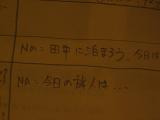 Nm:田中に泊まろう、今日は
NA:今日の旅人は...